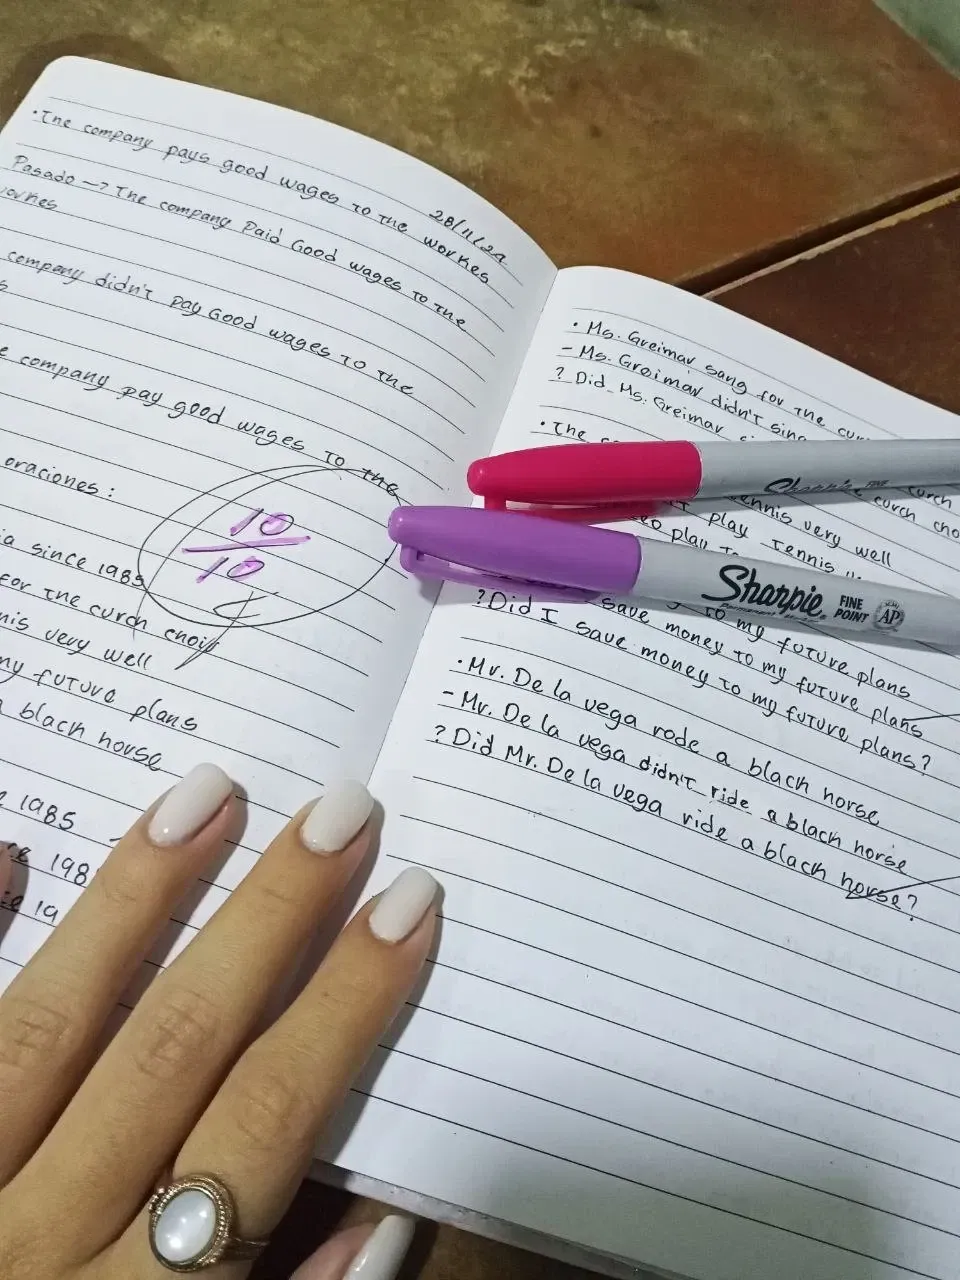 •The company pays good wages to the workes
28/11/24
Pasado → The company Paid Good wages to the
workes
company didn't pay Good wages to the
s
e company pay good wages to the
oraciones:
10
10
ia since 1985
For the curch choir
nis very well
my future plans
a blach horse
e 1985
198
19
• Ms. Greimar sang for the
- Ms. Greimar didn't sing
? Did Ms. Greimar
• The
curch
curch cho
tennis very well
t play tennis
play
to my future plans
save money to my future plans
?Did I save money to my future plans?
• Mr. De la vega rode a blach horse
- Mr. De la vega didn't ride a blach horse
? Did Mr. De la vega ride a blach horse?
Sharpie FINE
Sharpie FINE
POINT
Permanent Marker
AP